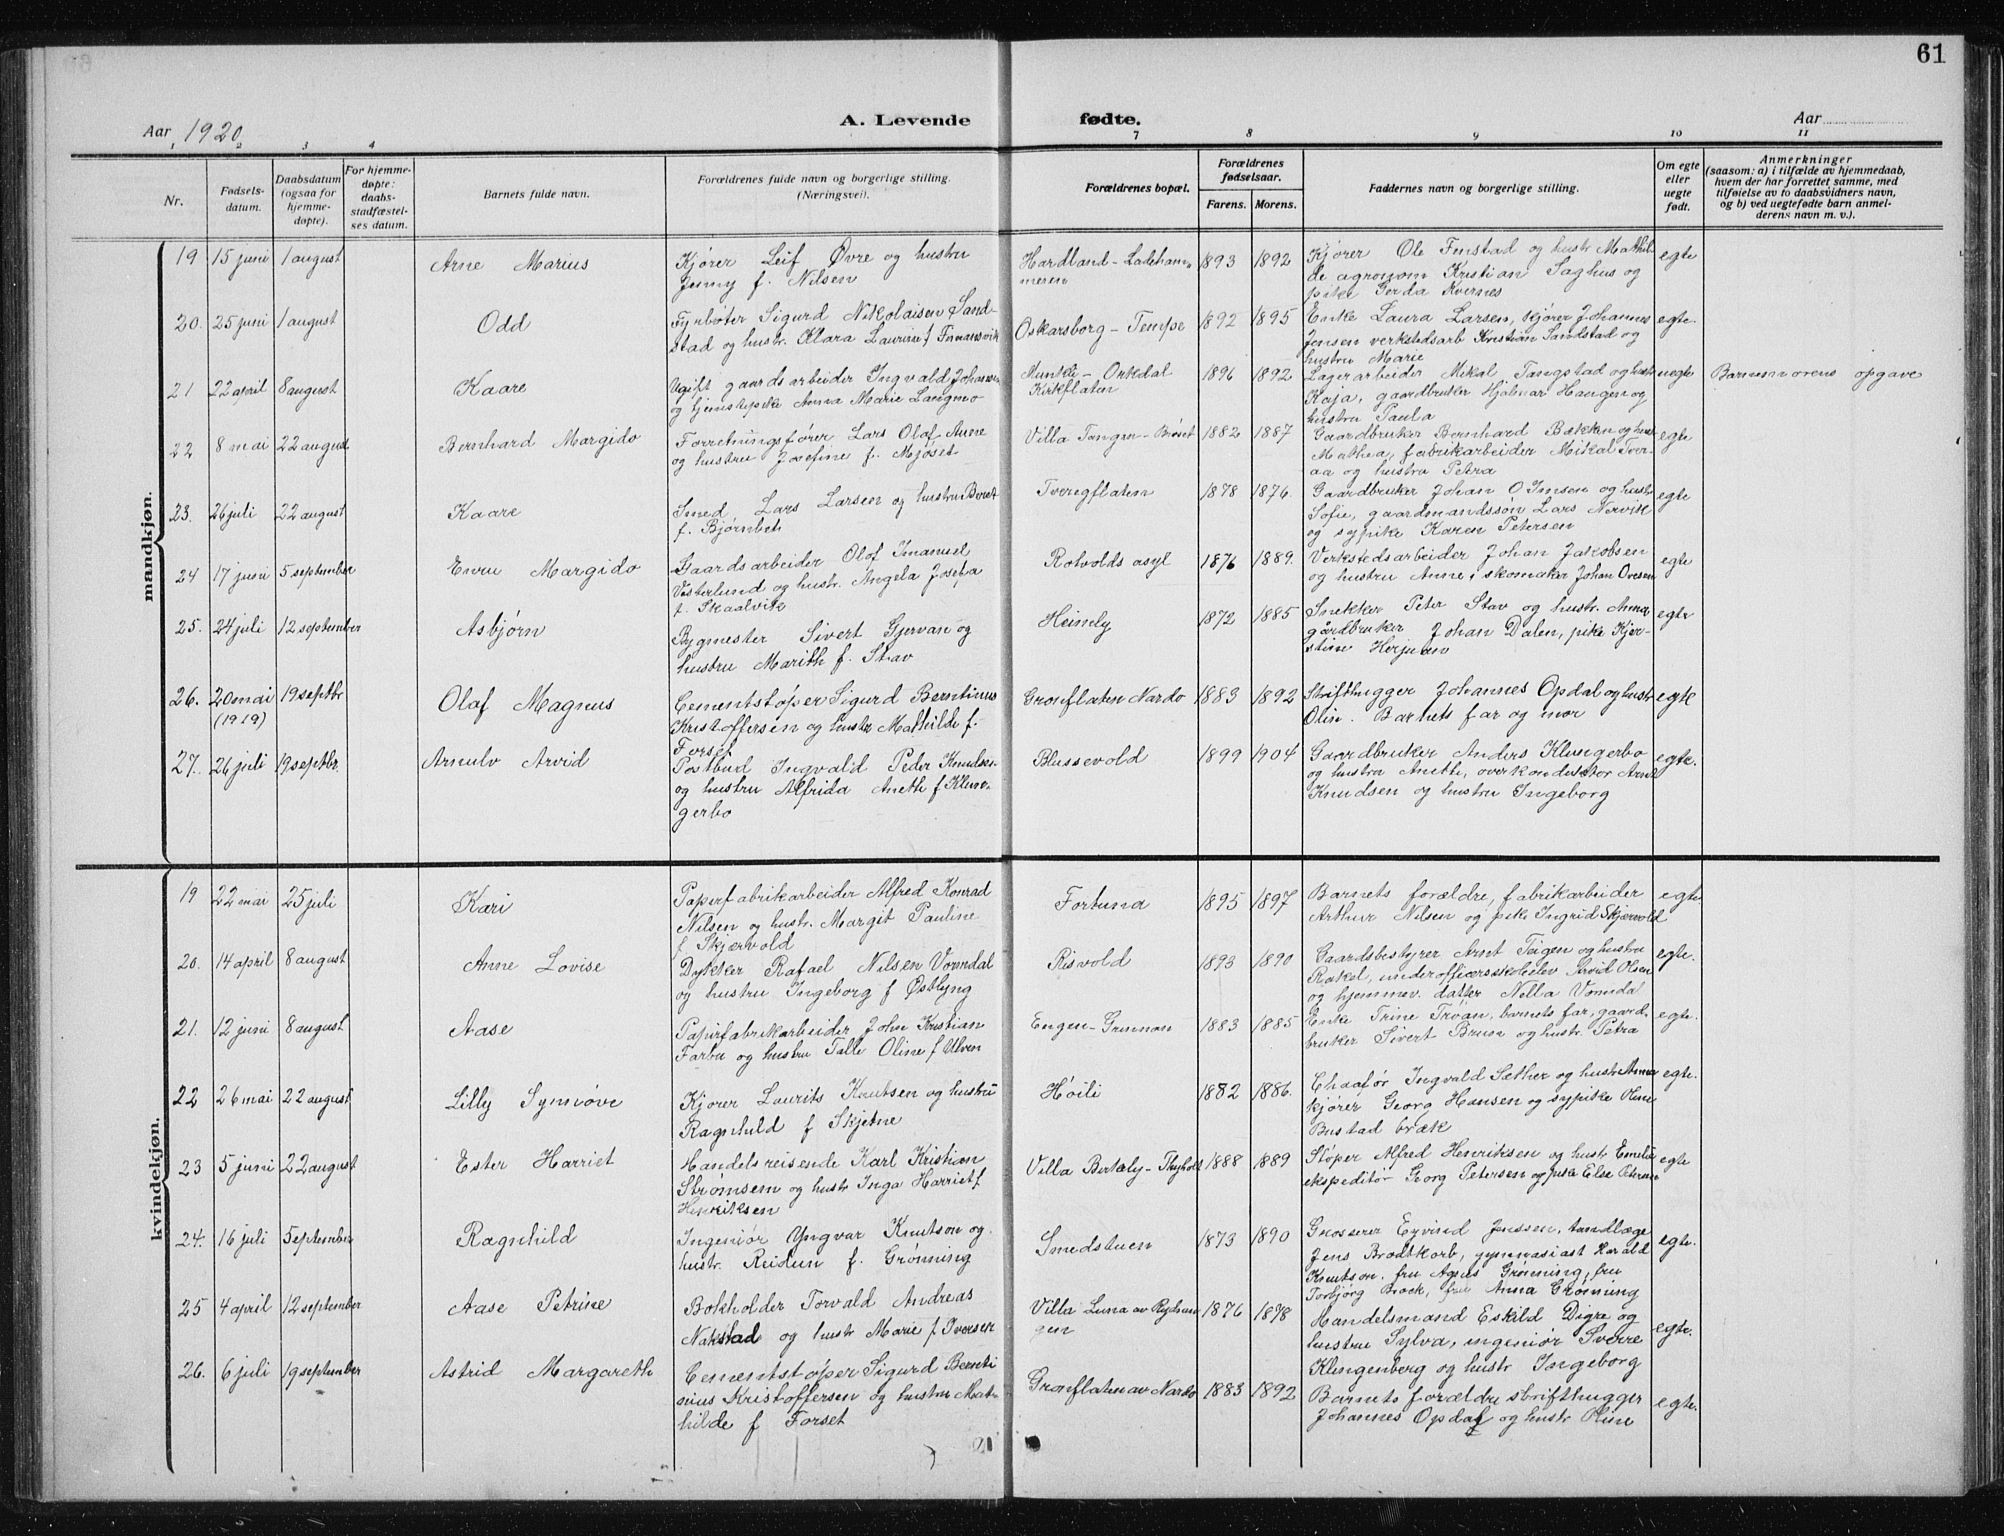 61
Aar 1920
A. Levende fødte.
Aar
1 2 3 4 7 8 9 10 11
Nr.
Fødsels-
datum.
Daabsdatum
(ogsaa for
hjemme-
døpte).
For hjemme-
døpte:
daabs-
stadfæstel-
ses datum.
Barnets fulde navn.
Forældrenes fulde navn og borgerlige stilling.
(Næringsvei).
Forældrenes bopæl.
Forældrenes
fødselsaar.
Farens. Morens.
Faddernes navn og borgerlige stilling.
Om egte
eller
uegte
født.
Anmerkninger
(saasom: a) i tilfælde av hjemmedaab,
hvem der har forrettet samme, med
tilføielse av to daabsvidners navn,
og b) ved uegtefødte barn anmel-
derens navn m. v.).
mandkjøn.
19 15 juni 1 august Arne Marius Kjører Leif Øvre og hustru
Jenny f. Nilsen
Hardland - Ladeham-
meren
1893 1892 Kjører Ole Fenstad og hustr. Mathil-
de agronom Kristian Saghus og
pike Gerda Kvernes
egte
20. 25 juni 1 august Odd Fyrbøter Sigurd Nikolaisen Sand-
stad og hustr. Klara Laurine f.
Oskarsborg - Tempe 1892 1895 Enke Laura Larsen, kjører Johannes
Jensen verkstedsarb Kristian Sandstad og
hustru Marie
egte.
21 22 april 8 august Kaare Ugift gaardsarbeider Ingvald Johansen
og tjenstepike Anna Marie Langmo
Munkli - Orkedal
Kirkflaten
1896 1892 Lagerarbeider Mikal Tangstad og hustr
Kaja, gaardbruker Hjalmar Haugen og
hustru Paula
uegte Barnemorens opgave
22 8 mai 22 august Bernhard Margido Forretningsfører Lars Olaf Aune
og hustru Josefine f. Mjøset
Villa Tangen - Brøset 1882 1887 Gaardbruker Bernhard Bakken og hustr
Mathea, fabrikarbeider Mikal Tver-
aa og hustru Petra
egte
23. 26 juli 22 august Kaare Smed Lars Larsen og hustru Beret
f. Bjørnbet
Tveregflaten 1878 1876. Gaardbruker Johan O Imsen og hustr
Sofie, gaardmandssøn Lars Nervik
og sypike Karen Petersen
egte
24 17 juni 5 september Margido Gaardsarbeider Olaf Imanuel
Vesterlund og hustr. Angela Josefa
f. Skaalvik
Rotvolds asyl 1876 1889. Verkstedsarbeider Johan Jakobsen
og hustru Anne, skomaker Johan Ovesen
egte
25. 24 juli 12 september Asbjørn Bygmester Sivert Gjervan og
hustru Marith f. Stav
Heimly 1872 1885 Snekker Peter Stav og hustr. Anna
gårdbruker Johan Dalen, pike Kjer-
stine
egte
26. 20 mai
(1919)
19 septbr Olaf Magnus Cementstøper Sigurd Berntinus
Kristoffersen og hustr Mathilde f.
Forset
Gronflaten Nardo 1883 1892 Skrifthugger Johannes Opdal og hustr
Olin. Barnets far og mor
egte
27. 26 juli 19 septbr. Arnulv Arvid Postbud Ingvald Peder Knudsen
og hustru Alfrida Aneth f Klun-
gerbo
Blussevold 1899 1904 Gaardbruker Anders Klungerbo
og hustru Anette, overkonduktør Arnt
Knudsen og hustru Ingeborg
egte.
kvindekjøn.
19 22 mai 25 juli Kari Papirfabrikarbeider Alfred Konrad
Nilsen og hustr. Margit Pauline
f Skjærvold
Fortuna 1895 1897 Barnets forældre, fabrikarbeider
Arthur Nilsen og pike Ingrid Skjærvold
egte
20. 14 april 8 august Anne Lovise Dykker Rafael Nilsen Vomdal
og hustru Ingeborg f Østlyng
Risvold 1893 1890 Gaardsbestyrer Arnt Teigen og hustru
Rakel, underofficersskoleelev Arvid Olsen
og hjemmev. datter Nella Vomdal
egte.
21. 12 juni 8 august Aase Papirfabrikarbeider John Kristian
Farbu og hustru Talle Oline f Ulven
Engen - Granaan 1883 1885 Enke Trine Trøan, barnets far, gaard-
bruker Sivert Bruun og hustr. Petra
egte.
22 26 mai 22 august Lilly Synnøve Kjører Laurits Knutsen og hustru
Ragnhild f Skjetne
Høili 1882 1886. Chaafør Ingvald Sæther og hustr Anna
kjører Georg Hansen og sypike Oline
Bustad bræk
egte.
23 5 juni 22 august Ester Harriet Handelsreisende Karl Kristian
Strømsem og hustr Inga Harriet f
Henriksen
Villa Bertely - Thyholt 1888 1889 Støper Alfred Henriksen og hustr Emilie
ekspeditør Georg Petersen og pike Else Petersen
egte
24. 16 juli 5 september Ragnhild Ingeniør Yngvar Knutson og
hustr. Reidun f. Grønning
Smedstuen 1873 1890 Grosserer Eyvind Jenssen, tandlæge
Jens Brodtkorb, gymnasiast Harald
Knutson, fru Agnes Grønning, fru
Torbjørg Brock, fru Anna Grønning
egte.
25 4 april 12 september Aase Petrine Bokholder Torvald Andreas
Nakstad og hustr Marie f Iversen
Villa Luna av Rydnin-
gen
1876 1878 Handelsmand Eskild Digre og
hustru Sylva, ingeniør Sverre
Klingenberg og hustr Ingeborg
egte.
26. 6 juli 19 september Astrid Margareth Cementstøper Sigurd Bernti
nius Kristoffersen og hustru Mat-
hilde f Forset
Gronflaten av Nardo 1883 1892 Barnets forældre skrifthugger
Johannes Opdal og hustr Oline
egte.